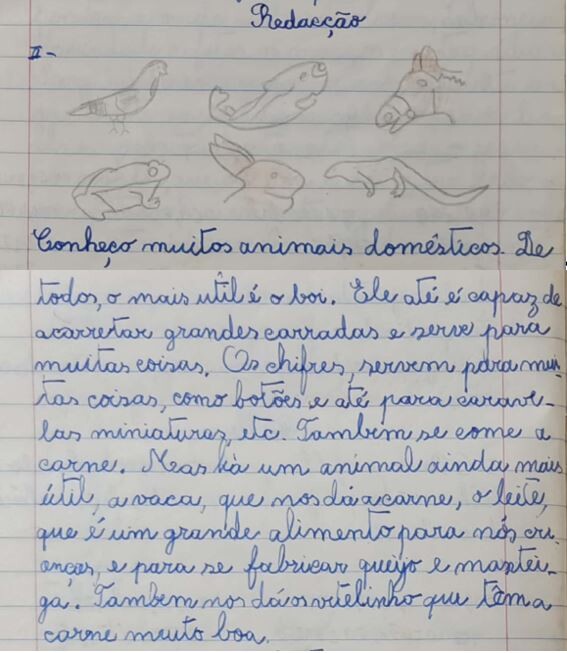 Redacção
II-
Conheço muitos animais domésticos. De
todos, o mais útil é o boi. Ele até é capaz de
acarretar grandes carradas e serve para
muitas coisas. Os chifres, servem para mui-
tas coisas, como botões e até para carave-
las miniaturas, etc. Tambem se come a
carne. Mas há um animal ainda mais
útil, a vaca, que nos dá a carne, o leite,
que é um grande alimento para nós cri-
anças, e para se fabricar queijo e mantei-
ga. Tambem nos dá os vitelinho que têm a
carne muito boa.